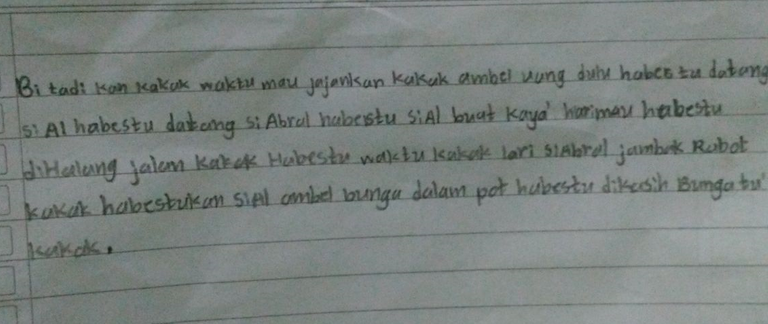 Bi tadi kan kakak waktu mau jajankan kakak ambel uung dulu habes tu datang
si Al habestu datang si Abral habestu si Al buat kaya' harimau habestu
diHalang jalan kakak Habestu waktu kakak lari siAbral jambak Rabot
kakak habestukan siAl ambel bunga dalam pot habestu dikasih Bunga tu'
kakak.